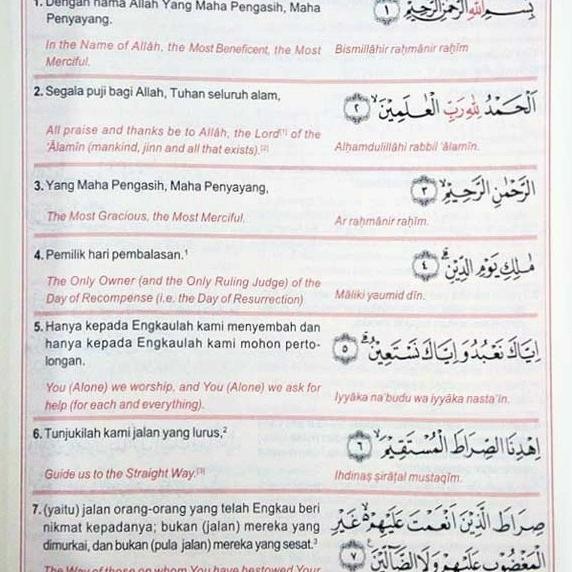 1. Dengan nama Allah Yang Maha Pengasih, Maha
Penyayang.
In the Name of Allâh, the Most Beneficent, the Most
Merciful.
بِسْمِ اللّٰهِ الرَّحْمٰنِ الرَّحِيْمِ ١
Bismillâhir raḥmânir raḥîm
2. Segala puji bagi Allah, Tuhan seluruh alam,
All praise and thanks be to Allâh, the Lord[1] of the
'Âlamîn (mankind, jinn and all that exists).[2]
اَلْحَمْدُ لِلّٰهِ رَبِّ الْعٰلَمِيْنَۙ ٢
Alḥamdulillâhi rabbil 'âlamîn.
3. Yang Maha Pengasih, Maha Penyayang,
The Most Gracious, the Most Merciful.
الرَّحْمٰنِ الرَّحِيْمِۙ ٣
Ar raḥmânir raḥîm.
4. Pemilik hari pembalasan.1
The Only Owner (and the Only Ruling Judge) of the
Day of Recompense (i.e. the Day of Resurrection)
مٰلِكِ يَوْمِ الدِّيْنِۗ ٤
Mâliki yaumid dîn.
5. Hanya kepada Engkaulah kami menyembah dan
hanya kepada Engkaulah kami mohon perto-
longan.
You (Alone) we worship, and You (Alone) we ask for
help (for each and everything).
اِيَّاكَ نَعْبُدُ وَاِيَّاكَ نَسْتَعِيْنُۗ ٥
Iyyâka na'budu wa iyyâka nasta'în.
6. Tunjukilah kami jalan yang lurus,2
Guide us to the Straight Way.[3]
اِهْدِنَا الصِّرَاطَ الْمُسْتَقِيْمَۙ ٦
Ihdinaṣ ṣirâṭal mustaqîm.
7. (yaitu) jalan orang-orang yang telah Engkau beri
nikmat kepadanya; bukan (jalan) mereka yang
dimurkai, dan bukan (pula jalan) mereka yang sesat.3
The Way of those on whom You have bestowed Your
صِرَاطَ الَّذِيْنَ اَنْعَمْتَ عَلَيْهِمْ ەۙ غَيْرِ
الْمَغْضُوْبِ عَلَيْهِمْ وَلَا الضَّاۤلِّيْنَ ٧